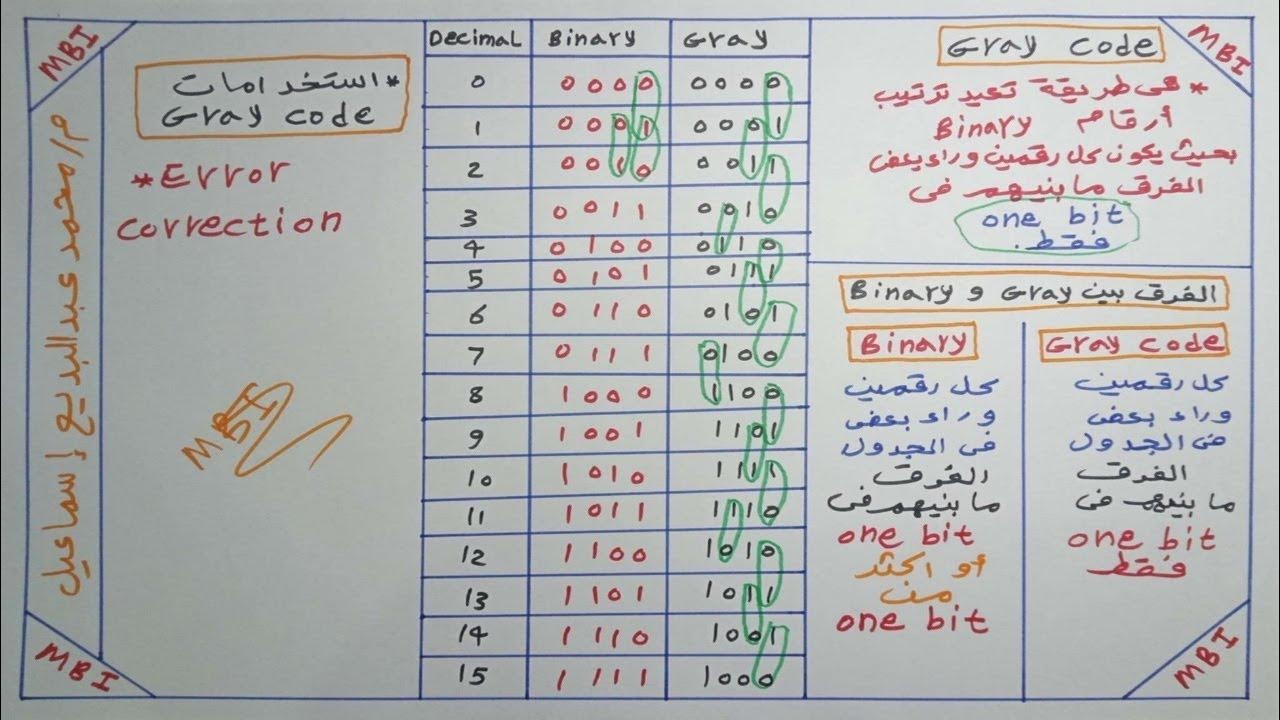 MBI
MBI
MBI
MBI
م/ محمد عبدالبديع إسماعيل
* استخدامات
Gray code
* Error
correction
MBI
Decimal Binary Gray
0 0000 0000
1 0001 0001
2 0010 0011
3 0011 0010
4 0100 0110
5 0101 0111
6 0110 0101
7 0111 0100
8 1000 1100
9 1001 1101
10 1010 1111
11 1011 1110
12 1100 1010
13 1101 1011
14 1110 1001
15 1111 1000
Gray code
* هى طريقة تعيد ترتيب
أرقام Binary
بحيث يكون كل رقمين وراء بعض
الفرق ما بنيهم فى
one bit
فقط.
الفرق بين Gray و Binary
Binary
كل رقمين
وراء بعض
فى الجدول
الفرق
ما بنيهم فى
one bit
أو اكثر
من
one bit
Gray code
كل رقمين
وراء بعض
فى الجدول
الفرق
ما بنيهم فى
one bit
فقط